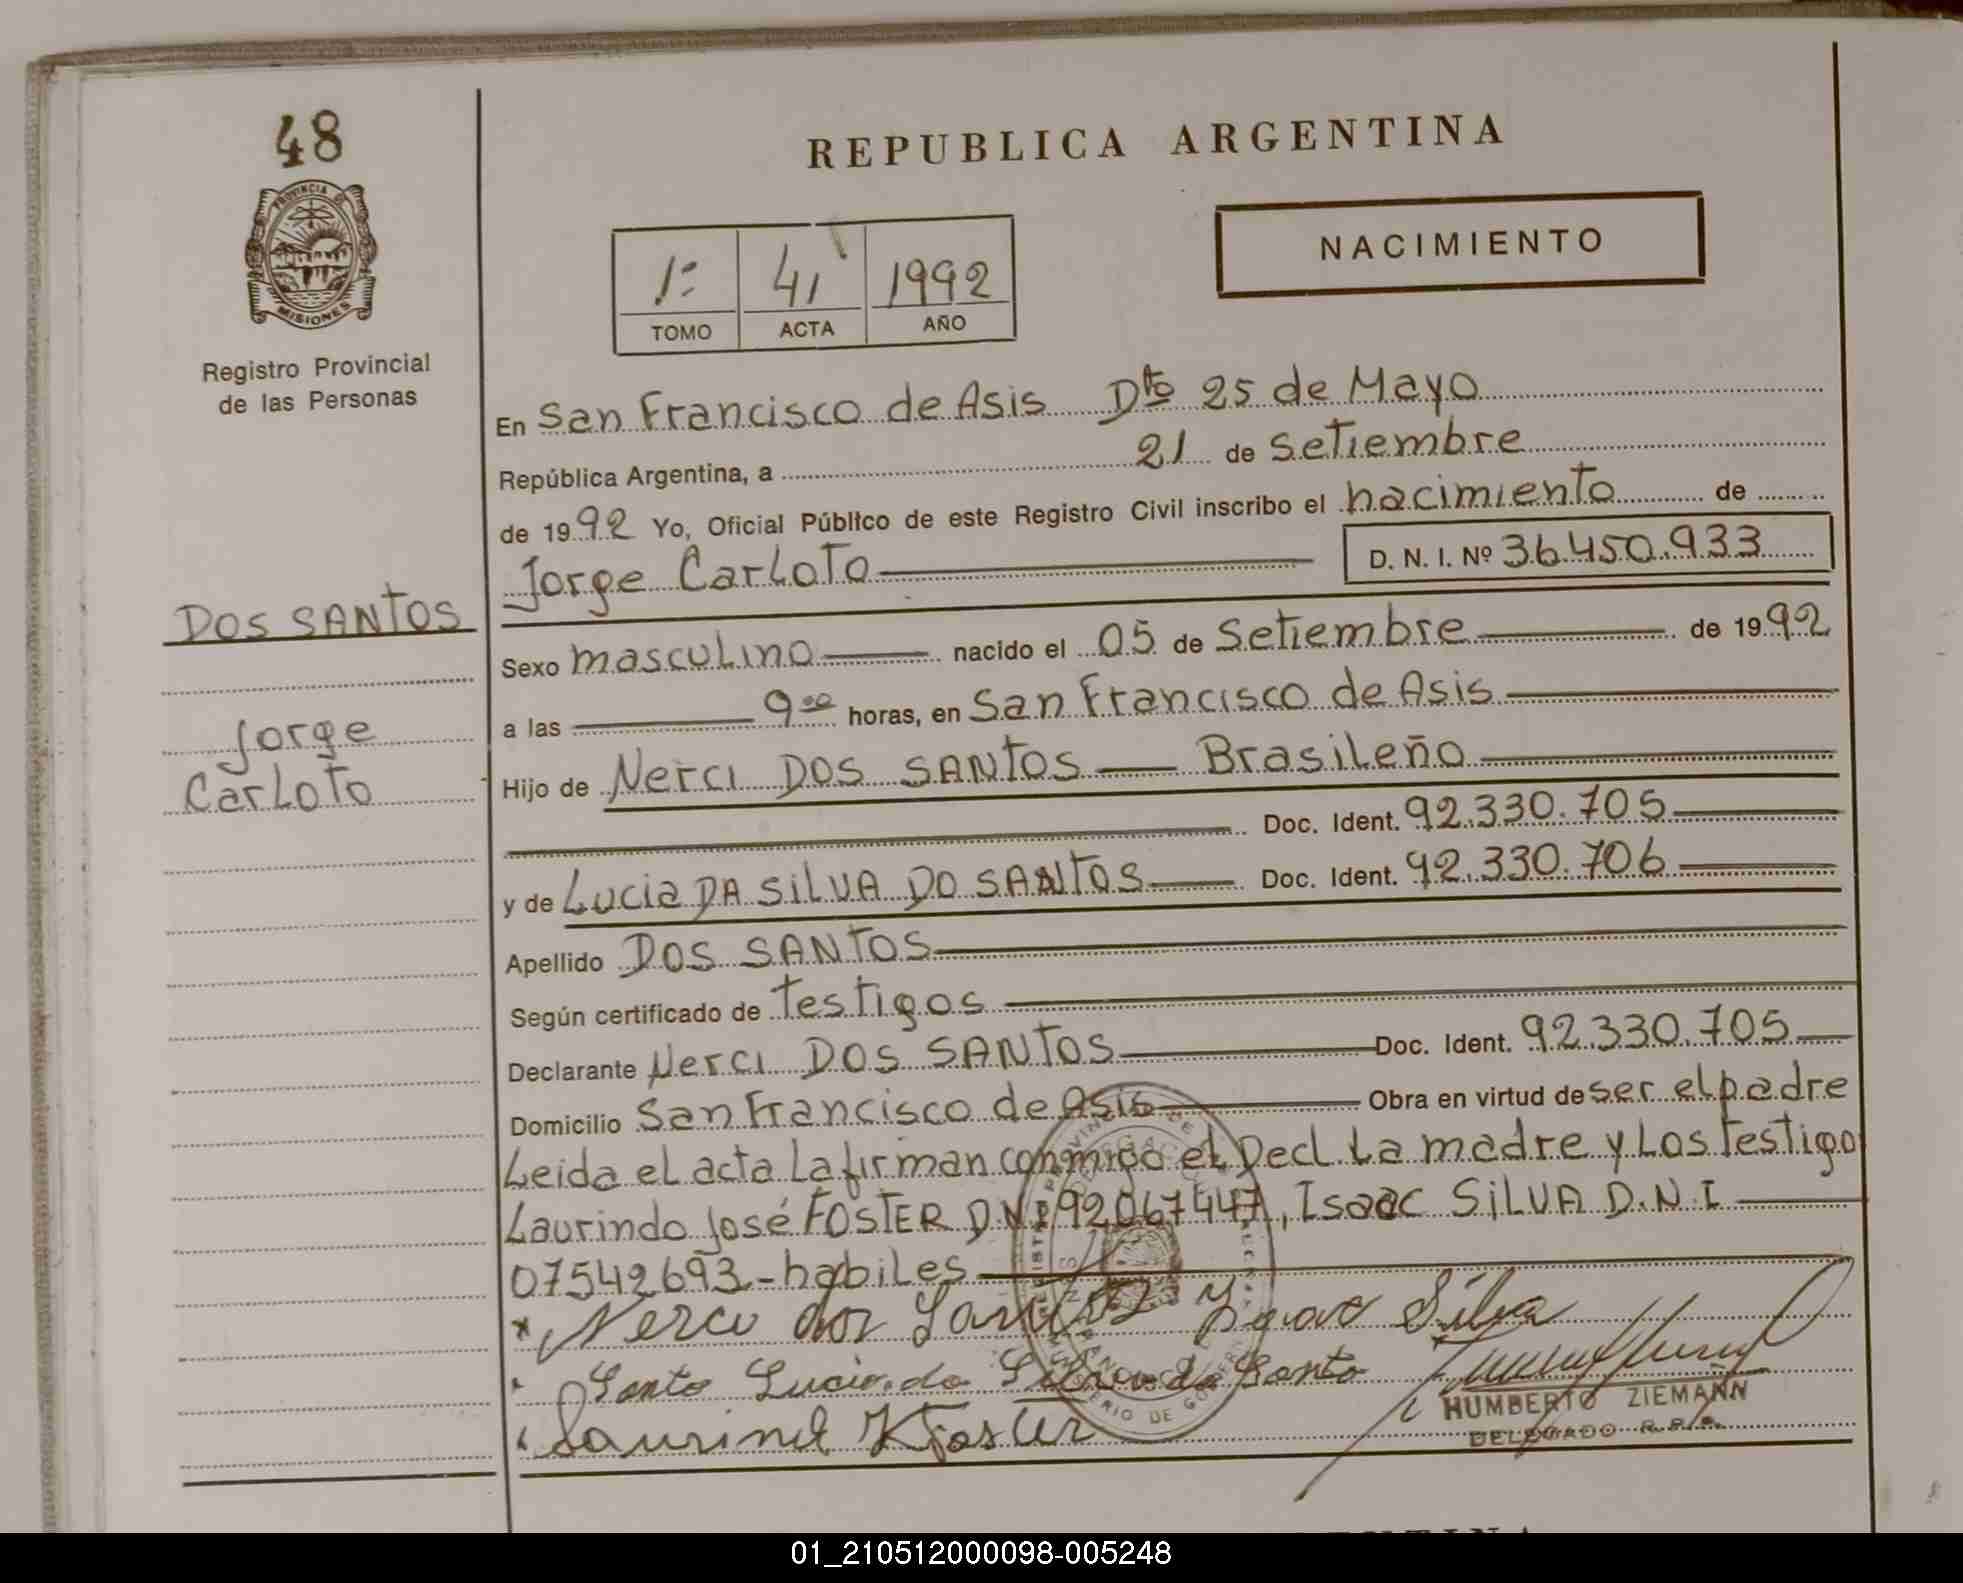 48
PROVINCIA DE
MISIONES
Registro Provincial
de las Personas
DOS SANTOS
Jorge
Carloto
REPUBLICA ARGENTINA
NACIMIENTO
1º 41 1992
TOMO ACTA AÑO
En San Francisco de Asis Dto 25 de Mayo
República Argentina, a 21 de Setiembre
de 1992 Yo, Oficial Público de este Registro Civil inscribo el nacimiento de
Jorge Carloto D. N. I. Nº 36.450.933
Sexo masculino nacido el 05 de Setiembre de 1992
a las 9 00 horas, en San Francisco de Asis
Hijo de Nerci DOS SANTOS Brasileño
Doc. Ident. 92.330.705
y de Lucia DA SILVA DO SANTOS Doc. Ident. 92.330.706
Apellido DOS SANTOS
Según certificado de testigos
Declarante Nerci DOS SANTOS Doc. Ident. 92.330.705
Domicilio San Francisco de Asis Obra en virtud de ser el padre
Leida el acta la firman conmigo el Decl. La madre y Los Testigo
Laurindo José FOSTER DNI 92067447, Isaac SILVA D.N.I
07542693 - habiles
Nerci dos Santos Isaac Silva
Santo Lucia da Silva do Santo
HUMBERTO ZIEMANN
DELEGADO R.P.P.
01_210512000098-005248